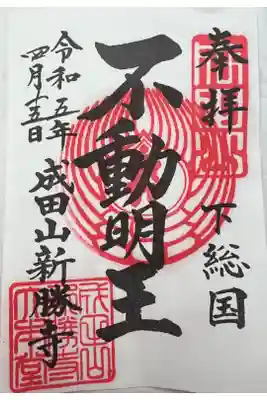 奉拝
下総国
不動明王
令和五年
四月十五日
成田山新勝寺